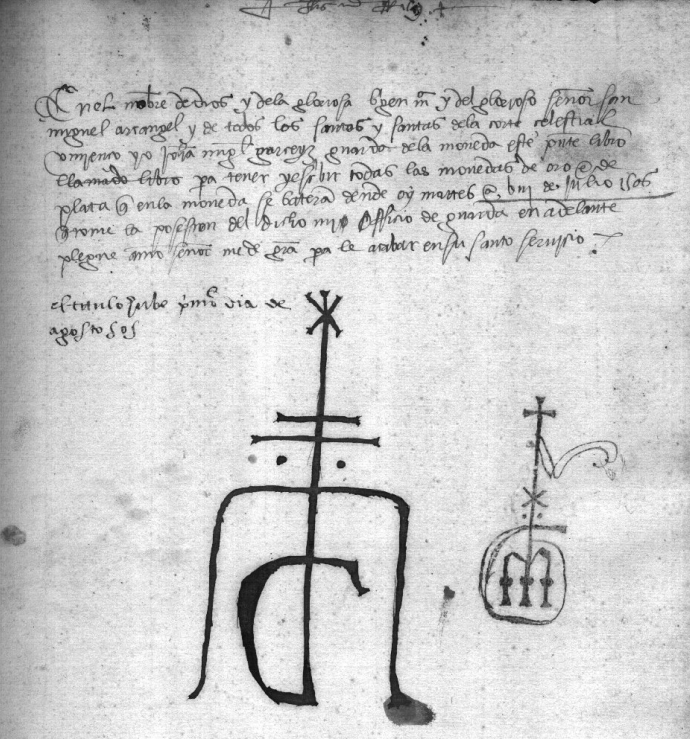 En el nõbre de dios y dela gloriosa vgen mª y del glorioso señor san
miguel arcangel y de todos los santos y santas dela corte celestial
comienço yo migl garcez guarda dela moneda este pnte libro
llamado libro pa tener y escbir todas las monedas de oro e de
plata q en la moneda se bateran dende oy martes a biij de Julio 1505
q tome la posesion del dicho mjo officio de guarda en adelante
plegue a mjo señor me de grã pa le acabar en su santo serujcio
el titulo hube pmo dia de
agosto 505
M